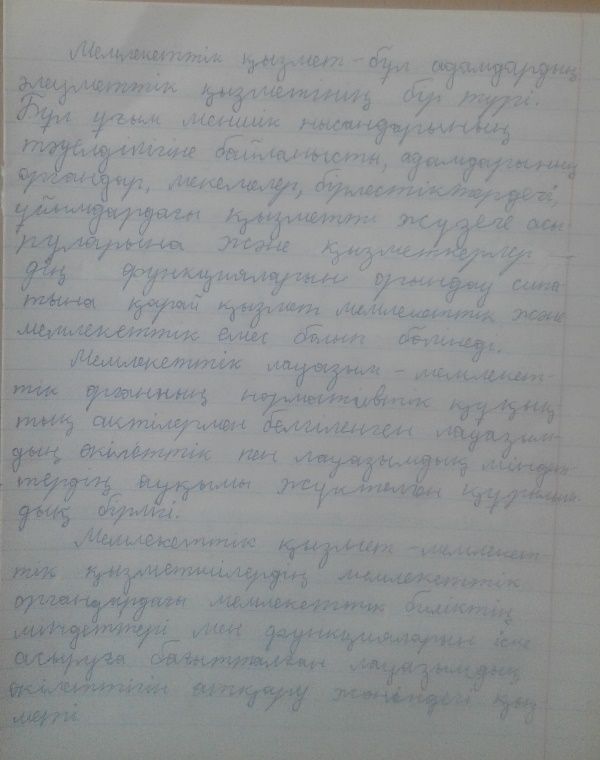 Мемлекеттік қызмет - бұл адамдардың
әлеуметтік қызметінің бір түрі.
Бұл ұғым меншік нысандарының
тәуелділігіне байланысты, адамдарының
органдар, мекемелер, бірлестіктердегі,
ұйымдардағы қызметті жүзеге асы
руларына және қызметкерлер -
дің функцияларын орындау сипа
тына қарай қызмет мемлекеттік және
мемлекеттік емес болып бөлінеді.
Мемлекеттік лауазым - мемлекет-
тік органның нормативтік құқық
тық актілермен белгіленген лауазым-
дық өкілеттік пен лауазымдық міндет-
тердің ауқымы жүктелген құрылым
дық бірлігі.
Мемлекеттік қызмет - мемлекет-
тік қызметшілердің мемлекеттік
органдардағы мемлекеттік биліктің
міндеттері мен функцияларын іске
асыруға бағытталған лауазымдық
өкілеттігін атқару жөніндегі қыз
меті